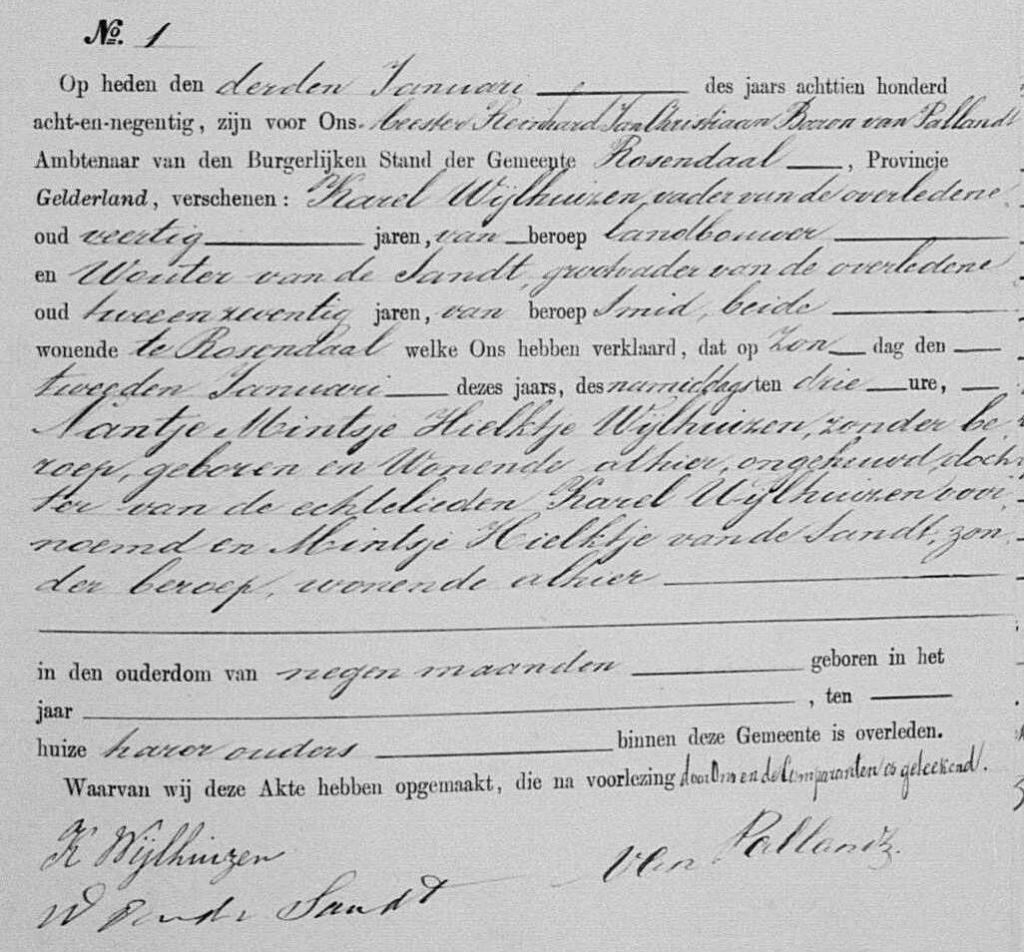 No. 1
Op heden den derden Januari des jaars achttien honderd
acht-en-negentig, zijn voor Ons Meester Reinhard Jan Christiaan Baron van Pallandt
Ambtenaar van den Burgerlijken Stand der Gemeente Rosendaal, Provincie
Gelderland, verschenen: Karel Wijlhuizen, vader van de overledene,
oud veertig jaren, van beroep landbouwer
en Wouter van de Sandt, grootvader van de overledene
oud tweeenzeventig jaren, van beroep Smid, beide
wonende te Rosendaal welke Ons hebben verklaard, dat op Zondag den
tweeden Januari dezes jaars, des namiddags ten drie ure,
Nantje Mintsje Hielktje Wijlhuizen, zonder be-
roep, geboren en Wonende alhier, ongehuwd, doch-
ter van de echtelieden Karel Wijlhuizen voor-
noemd en Mintsje Hielktje van de Sandt, zon-
der beroep, wonende alhier
in den ouderdom van negen maanden geboren in het
jaar , ten
huize harer ouders binnen deze Gemeente is overleden.
Waarvan wij deze Akte hebben opgemaakt, die na voorlezing door Ons en de Comparanten is geteekend.
K Wijlhuizen
van Pallandt.
W van de Sandt